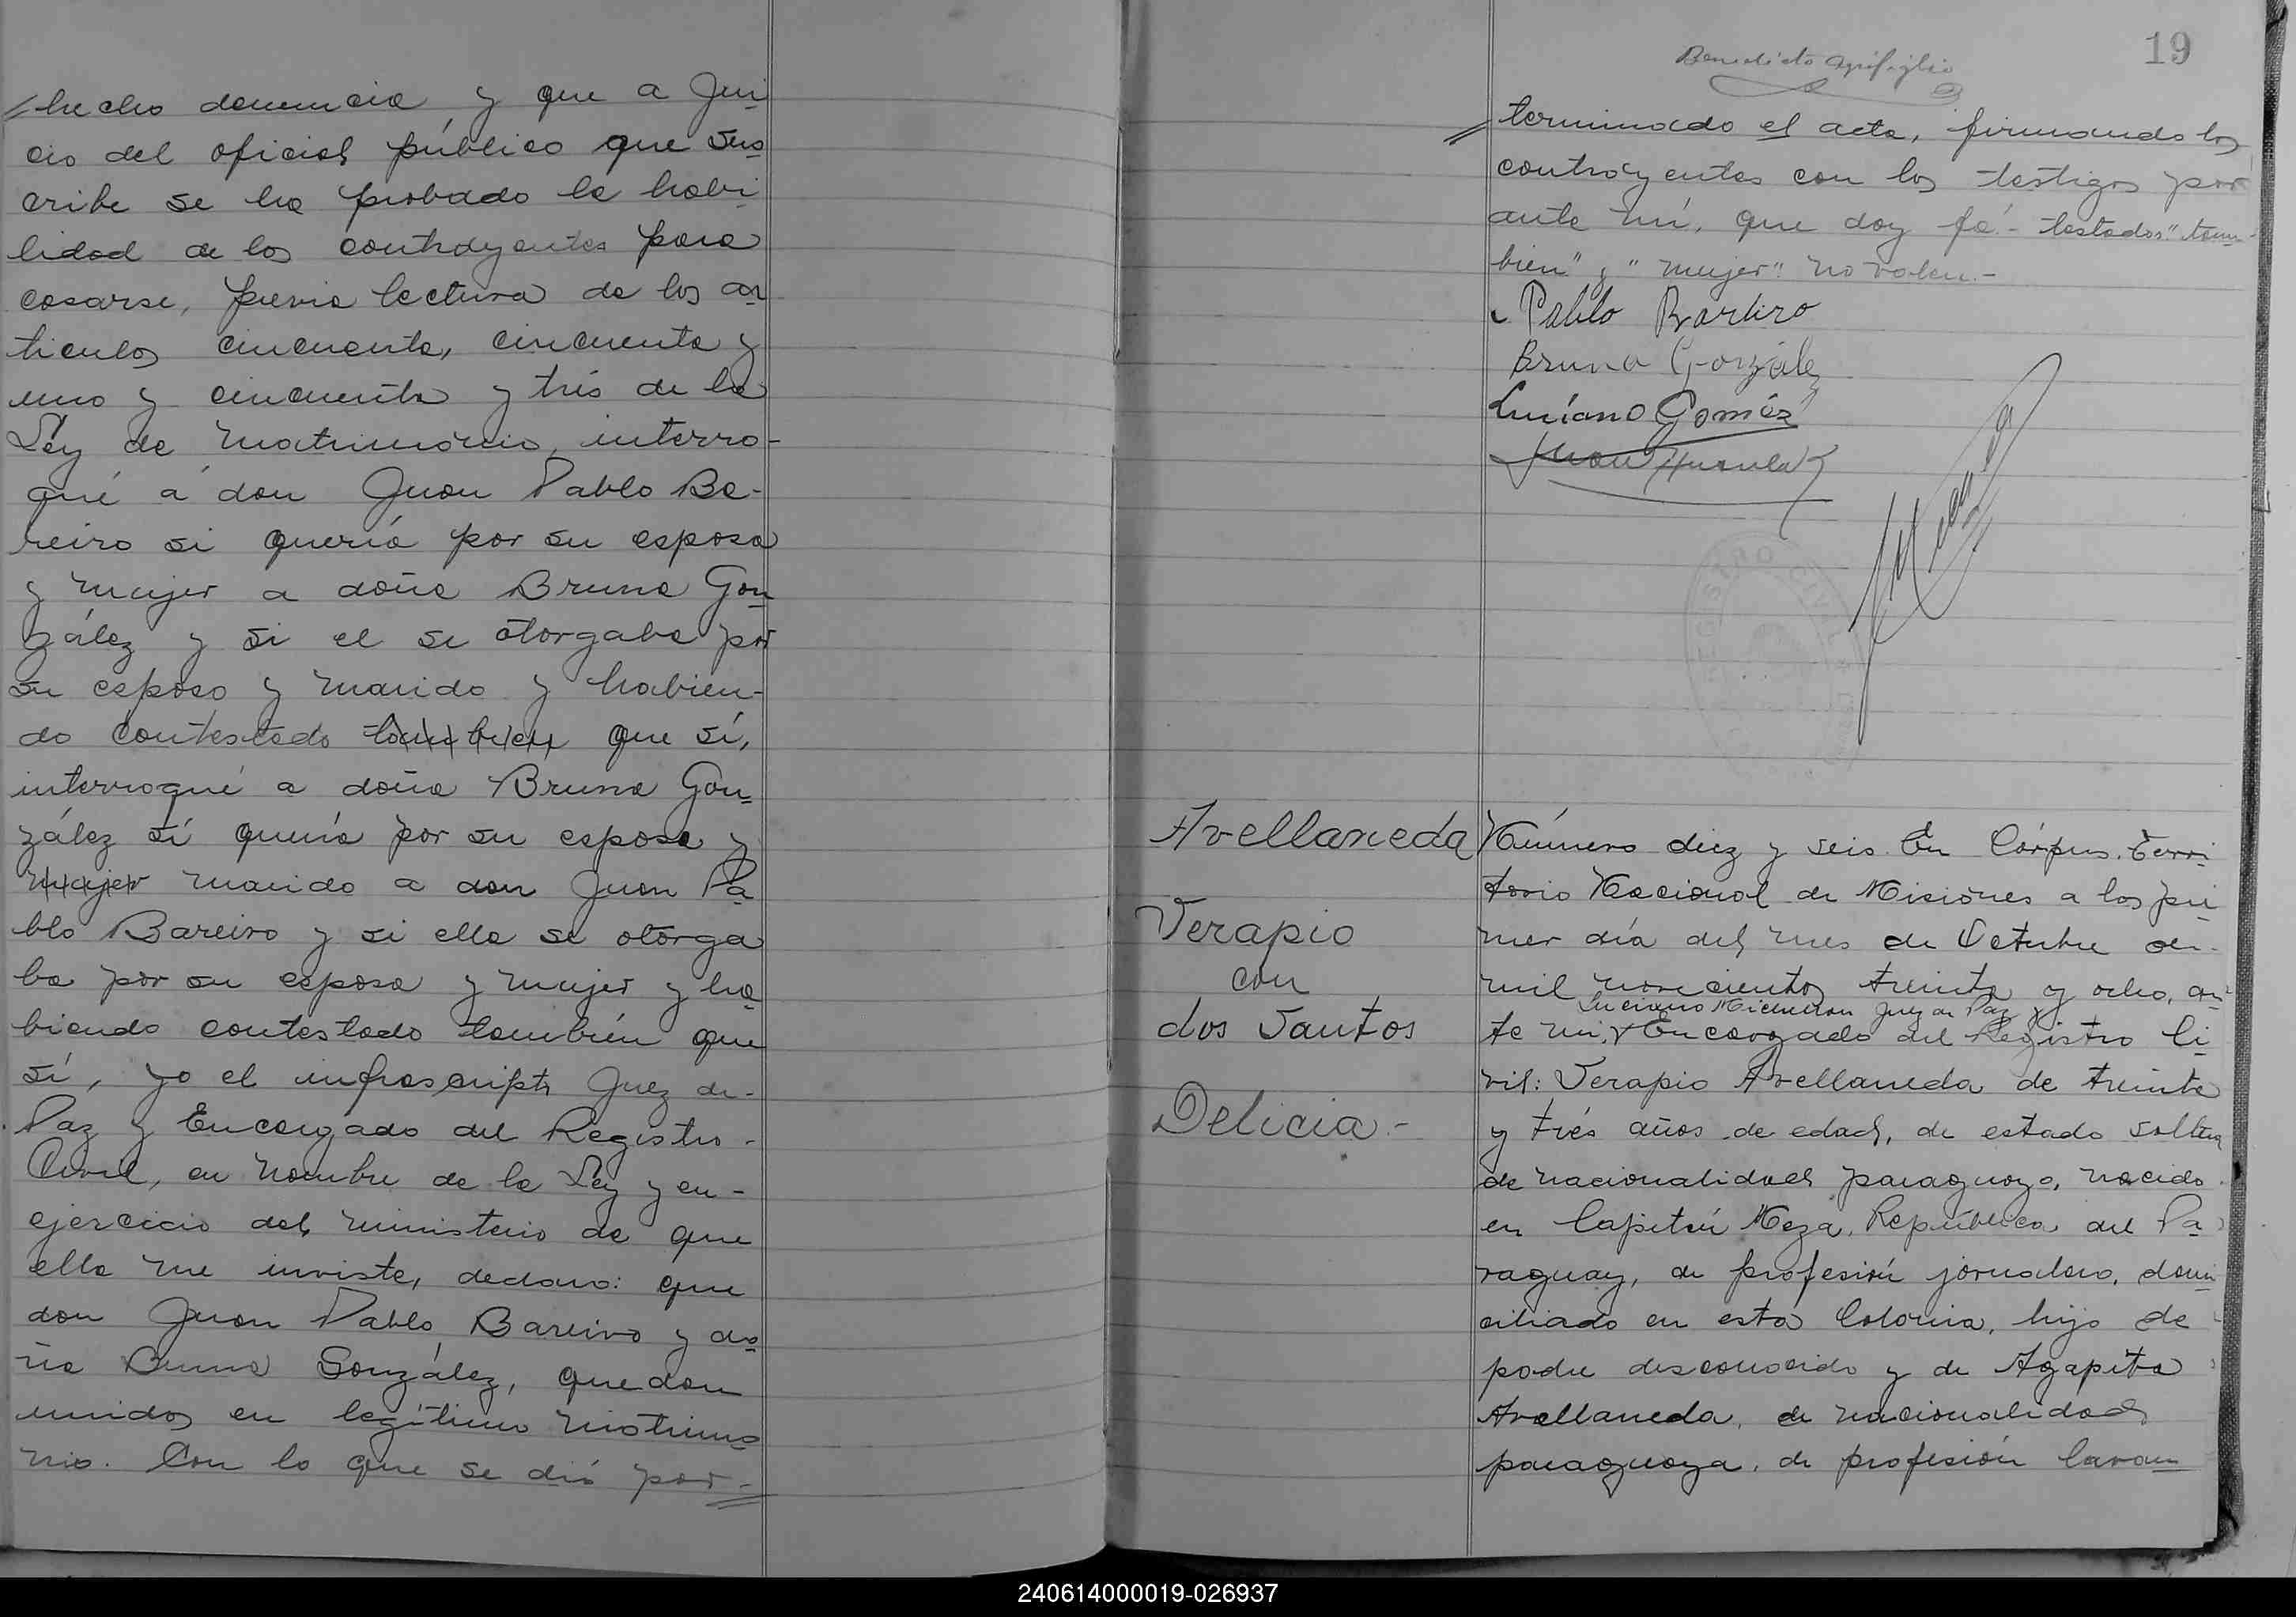 hecho denuncia y que a jui
cio del oficial público que sus
cribe se ha probado la habi
lidad de los contrayentes para
casarse, previa lectura de los ar
tículos cincuenta, cincuenta y
uno y cincuenta y trés de la
Ley de Matrimonio, interro-
gué a don Juan Pablo Ba-
reiro si quería por su esposa
y mujer a doña Bruna Gon
zález y si el se otorgaba por
su esposo y marido y habien-
do contestado también que sí,
interrogué a doña Bruna Gon
zález sí quería por su esposo y
mujer marido a don Juan Pa
blo Bareiro y si ella se otorga
ba por su esposa y mujer y ha
biendo contestado también que
sí, yo el infrascripto Juez de-
Paz y Encargado del Registro-
Civil, en nombre de la Ley y en-
ejercicio del ministerio de que
ella me inviste, declaro: que
don Juan Pablo Bareiro y do
ña Bruna González, quedan
unidos en legítimo matrimo
nio. Con lo que se dió por-
19
Benedicto
terminado el acta, firmando los
contrayentes con los testigos por
ante mí, que doy fé.- testados "tam-
bién" y "mujer" no valen.-
Pablo Bareiro
Bruna González
Luciano Gomez
Juan
REGISTRO CIVIL
Avellaneda
Serapio
con
dos Santos
Delicia.-
Número diez y seis. En Córpus, Terri
torio Nacional de Misiones a los pri
mer día del mes de Octubre de-
mil novecientos treinta y ocho, an-
Luciano Juez de Paz y
te mi, Encargado del Registro Ci
vil: Serapio Avellaneda de treinta
y trés años de edad, de estado soltero
de nacionalidad paraguaya, nacido
en Capitán Meza, República del Pa
raguay, de profesión jornalero, domi
ciliado en esta Colonia, hijo de
padre desconocido y de Agapita
Avellaneda, de nacionalidad
paraguaya, de profesión lavan
240614000019-026937